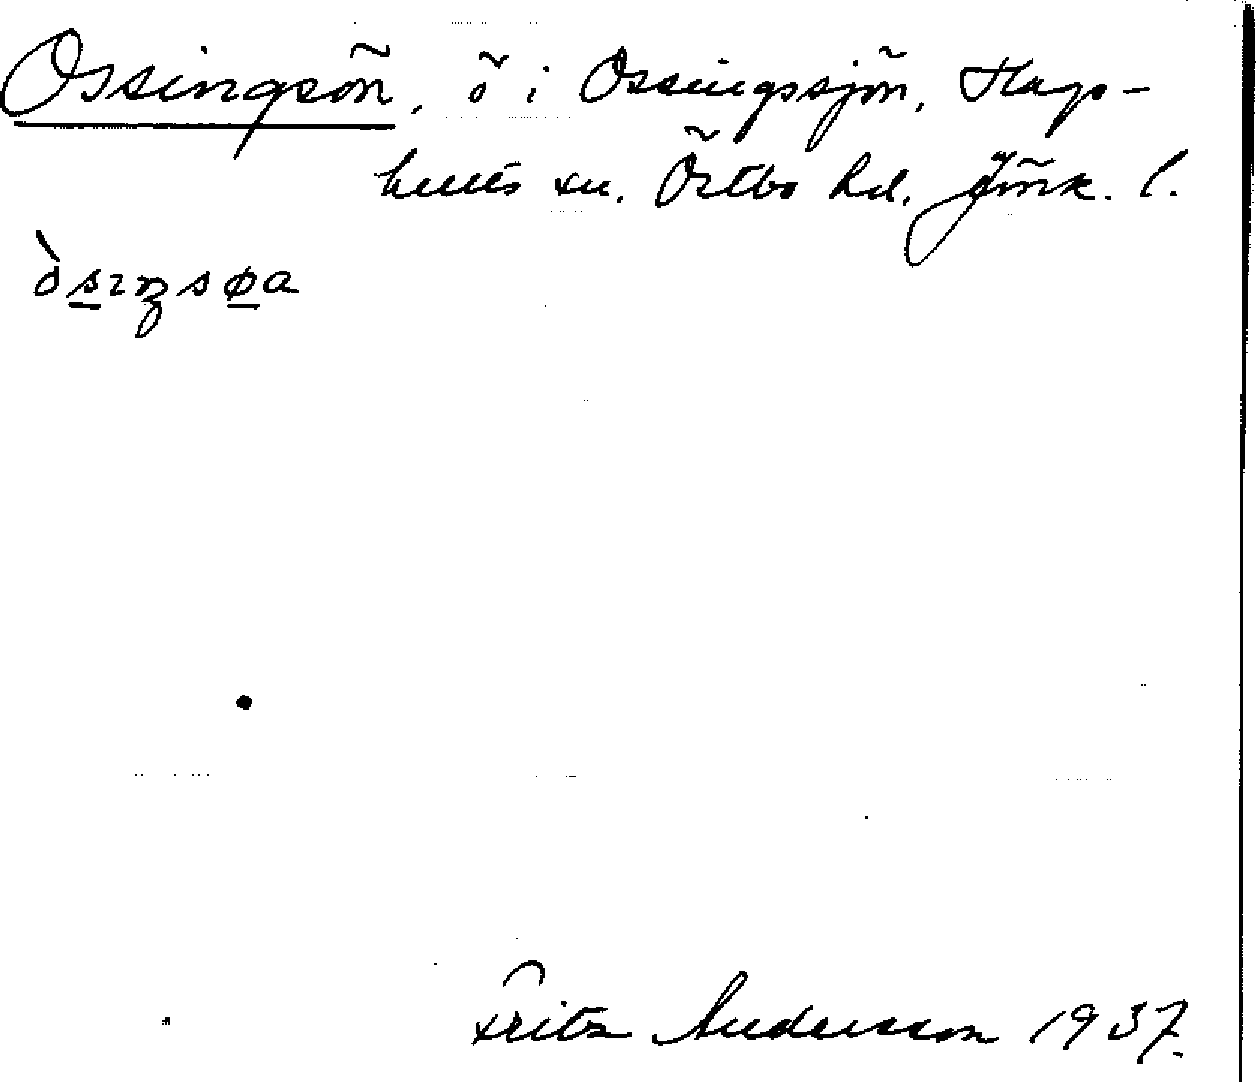 Ossingsön, ö i Ossingssjön, Hags-
hults sn. Östbo hd. Jönk. l.
Fritz Andersson 1937.